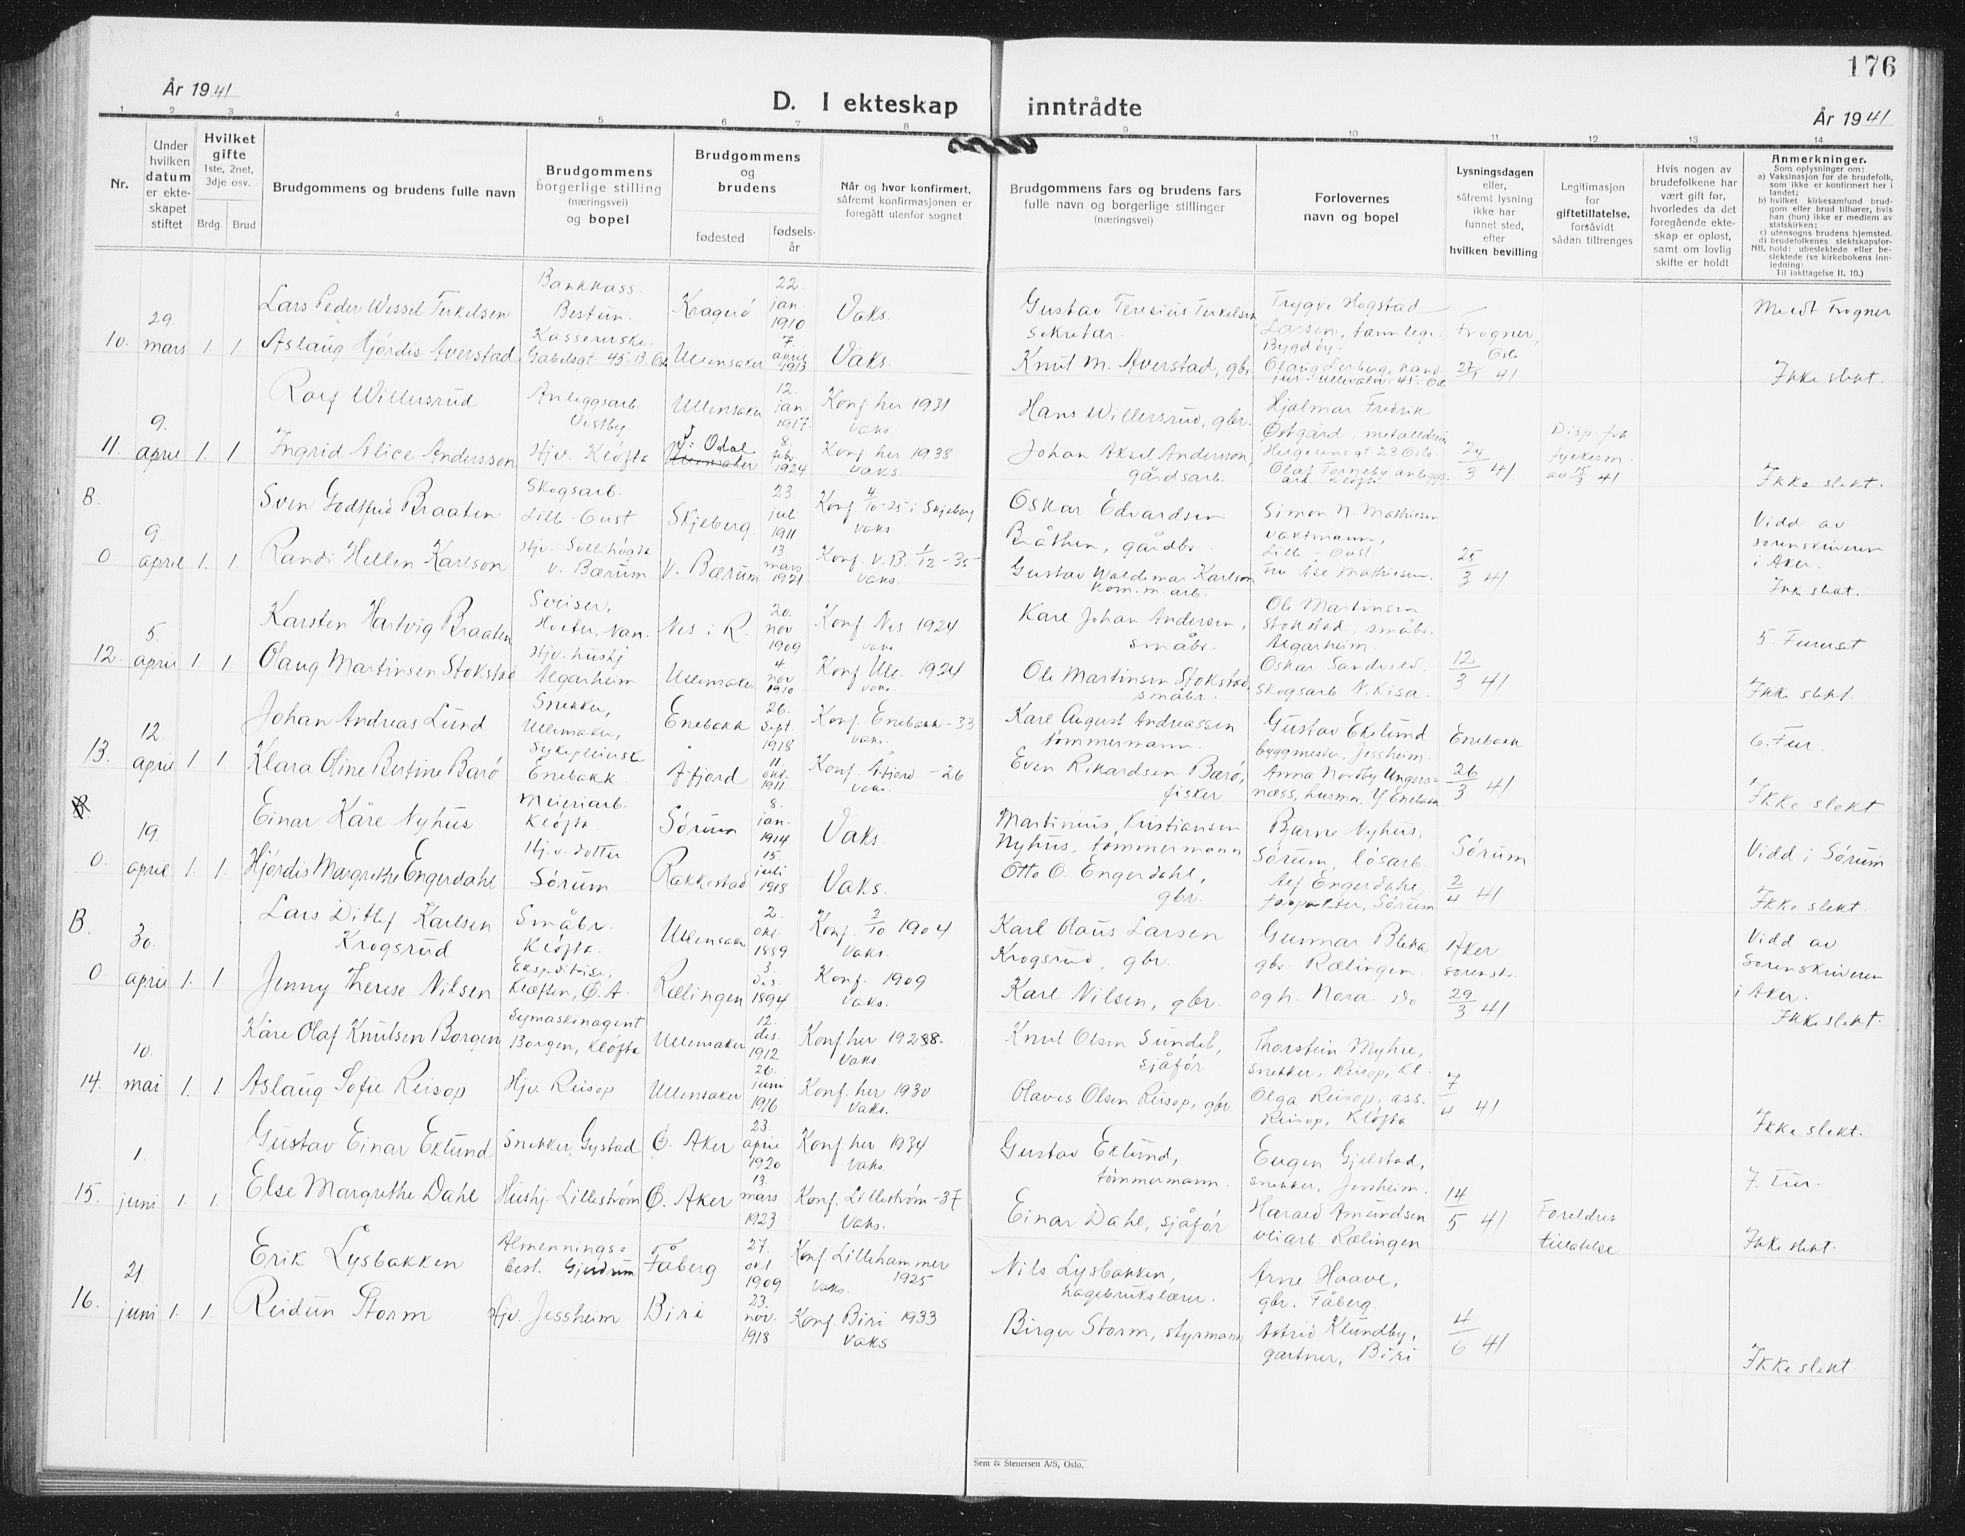 176
År 1941
D. I ekteskap inntrådte
År 1941
1 2 3 4 5 6 7 8 9 10 11 12 13 14
Nr.
Under hvilken datum er ekte-skapet stiftet
Hvilket gifte
1ste, 2net, 3dje osv.
Brdg. Brud
Brudgommens og brudens fulle navn
Brudgommens borgerlige stilling (næringsvei) og bopel
Brudgommens og brudens
fødested
fødsels-år
Når og hvor konfirmert, såfremt konfirmasjonen er foregått utenfor sognet
Brudgommens fars og brudens fars fulle navn og borgerlige stillinger (næringsvei)
Forlovernes navn og bopel
Lysningsdagen eller, såfremt lysning ikke har funnet sted, efter hvilken bevilling
Legitimasjon for giftetillatelse, forsåvidt sådan tiltrenges
Hvis nogen av brudefolkene har vært gift før, hvorledes da det foregående ekte-skap er opløst, samt om lovlig skifte er holdt
Anmerkninger.
Som oplysninger om:
a) Vaksinasjon for de brudefolk, som ikke er konfirmert her i landet;
b) hvilket kirkesamfund brud-gom eller brud tilhører, hvis han (hun) ikke er medlem av statskirken;
c) utensogns brudens hjemsted.
d) brudefolkenes slektskapsfor-hold: ubeslektede eller be-slektede (se kirkebokens inn-ledning:
NB.
Til iakttagelse II. 10.)
10. 29. mars 1. 1.
Lars Peder Wessel Terkelsen
Bankkass. Bestun.
Kragerø
22. jan. 1910
Vaks.
Gustav Teresius Terkelsen sekretær.
Trygve Hogstad Larsen, tannlege. Bygdøy.
Frogner, Oslo
27/1 41
Aslaug Hjördis Averstad
Kassererske. Gabelsgt. 45. B. Osl.
Ullensaker
7. april 1913
Vaks.
Knut M. Averstad, gbr.
Meldt Frogner
Ikke slekt.
11. 9. april 1. 1.
Rolf Willersrud
Anleggsarb. Vestby.
Ullensaker
12. jan. 1917.
Konf her 1931 Vaks.
Hans Willersrud, gbr.
Hjalmar Fredrik Østgård, Helgesens gt 23 Oslo.
24/3 41.
Ingrid Alice Andersson
Hjv. Kløfta
Ullensaker
Odal
8. febr 1924
Konf her 1938 Vaks.
Johan Axel Andersson, gårdsarb.
Olaf Torneby anleggs. arb. Kløfta
av 15/3 41
Ikke slekt.
B. 0. 9. april 1. 1.
Sven Godtfred Braaten
Skogsarb. Lill-Oust
Skjeberg
23. juli 1911
Konf 4/10-25 i Skjeberg vaks.
Oskar Edvardsen Bråthen, gårdbr.
Simon N. Mathiesen vaktmann, Lill-Oust
25/3 41
Randi Hellen Karlson
Hjv. Sollihøgda V. Bærum
V. Bærum
13. mars 1921
Konf. V. B. 1/12-35 vaks.
Gustav Waldemar Karlson kom.m.arb.
Fru Åse Mathiesen.
Vidd av sorenskriveren i Aker.
Ikke slekt.
12. 5. april 1. 1.
Karsten Hartvig Braaten
Sveiser, Hvter, Nan.
Nes i R.
20. nov 1909
Konf Nes 1924 vaks
Karl Johan Andersen, småbr.
Ole Martinsen Stokstad, småbr. Algarheim.
12/3 41
Olaug Martinsen Stokstad
Hjv. hushj Algarheim
Ullensaker
4. nov 1910
Konf Ull. 1924 vaks.
Ole Martinsen Stokstad, småbr.
Oskar Sandvold. skogsarb N. Kisa.
5. Furuset
Ikke slekt.
13. 12. april 1. 1.
Johan Andreas Lund
Snekker, Ullensaker,
Enebakk
26. Sept. 1918
Konf. Enebakk-33 vaks.
Karl August Andreassen tømmermann.
Gustav Eklund byggmester, Jessheim.
Enebakk
26/3 41
Klara Oline Bertine Barø
Sykepleierske Enebakk
Åfjord
11. okt. 1911
Konf. Åfjord-26 vaks.
Even Rikardsen Barø, fisker
Anna Nordby Ungers=næss, husmor. Y Enebakk
6. Fur.
Ikke slekt
B 0. 19. april 1. 1.
Einar Kåre Nyhus
Meieriarb. Kløfta.
Sørum
8. jan. 1914
Vaks.
Martinius Kristiansen Nyhus, tømmermann
Bjarne Nyhus, Sørum, løsarb.
Sørum
2/4 41
Hjördis Margrethe Engerdahl
Hj.v. dotter Sørum
Rakkestad
15. juli 1918
Vaks.
Otto O. Engerdahl, gbr.
Alf Engerdahl, Sørum
Vidd i Sørum
Ikke slekt.
B. 0. 30. april 1. 1
Lars Ditlef Karlsen Krogsrud
Småbr. Kløfta.
Ullensaker
2. okt. 1889
Konf. 2/10 1904 Vaks.
Karl Olaus Larsen Krogsrud, gbr.
Gunnar Bleka gbr. Rælingen.
Aker sorenskr.
29/3 41
Jenny Therese Nilsen
Ekspeditrise, Kløften, Ø. A.
Rælingen
3. des. 1894
Konf. 1909 vaks.
Karl Nilsen, gbr.
og h. Nora. Do
Vidd av Sorenskriveren i Aker.
Ikke slekt.
14. 10. mai 1. 1
Kåre Olaf Knutsen Borgen
Symaskinagent Borgen, Kløfta
Ullensaker
12. des. 1912
Konf her 1928. vaks
Knut Olsen Sundeb, sjåfør
Thorstein Myhre, snekker, Reisop, Kl.
7/4 41
Aslaug Sofie Reisop
Hjv. Reisop
Ullensaker
26. juni 1916
Konf. her 1930 Vaks.
Olaves Olsen Reisop, gbr
Olga Reisop, ass. Reisop, Kløfta
Ikke slekt.
15. 1. juni 1. 1.
Gustav Einar Eklund
Snekker, Gystad
Ø. Aker
23. april 1920
Konf her 1934 Vaks.
Gustav Eklund, tømmermann.
Eugen Gjelstad, snekker, Jessheim.
14/5 41
Else Margrethe Dahl
Hushj. Lillestrøm
Ø. Aker
13. mars 1923
Konf. Lillestrøm-37 Vaks.
Einar Dahl, sjåfør
Harald Amundsen Rælingen
Foreldres tillatelse
7. Fur.
Ikke slekt.
16. 21. juni 1. 1.
Erik Lysbakken
Almennings=best. Gjerdrum
Fåberg
27. okt. 1909
Konf Lillehammer 1925 Vaks.
Nils Lysbakken, hagebrukslærer.
Arne Haave, gbr. Fåberg.
4/6 41
Reidun Storm
Hjv. Jessheim
Biri
23. nov. 1918
Konf. Biri 1933 Vaks
Birger Storm, styrmann
Astrid Klundby, gartner, Biri
Ikke slekt.
Sem & Stenersen A/S, Oslo.